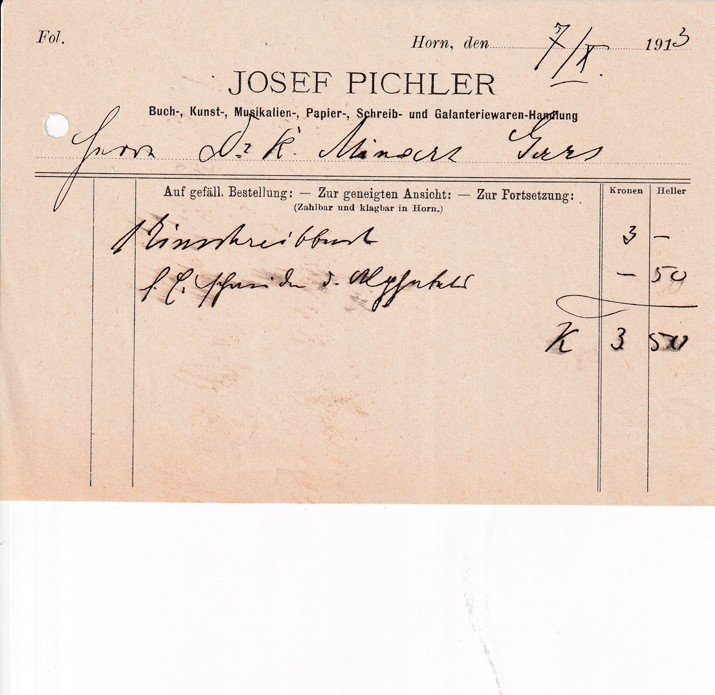 Fol.
Horn, den 7/X. 1913
JOSEF PICHLER
Buch-, Kunst-, Musikalien-, Papier-, Schreib- und Galanteriewaren-Handlung
Herrn Dr K.
Auf gefäll. Bestellung: — Zur geneigten Ansicht: — Zur Fortsetzung: Kronen Heller
(Zahlbar und klagbar in Horn.)
1 3 –
– 50
K 3 50